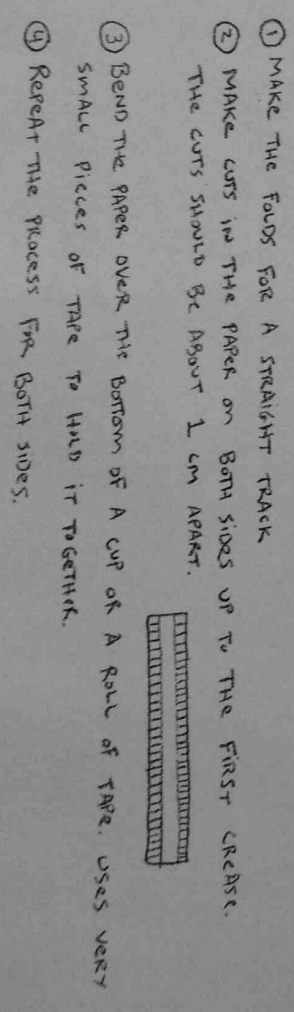 ① MAKE THE FOLDS FOR A STRAIGHT TRACK
② MAKE CUTS IN THE PAPER ON BOTH SIDES UP TO THE FIRST CREASE.
THE CUTS SHOULD BE ABOUT 1 CM APART.
③ BEND THE PAPER OVER THE BOTTOM OF A CUP OR A ROLL OF TAPE. USES VERY
SMALL PIECES OF TAPE TO HOLD IT TOGETHER.
④ REPEAT THE PROCESS FOR BOTH SIDES.